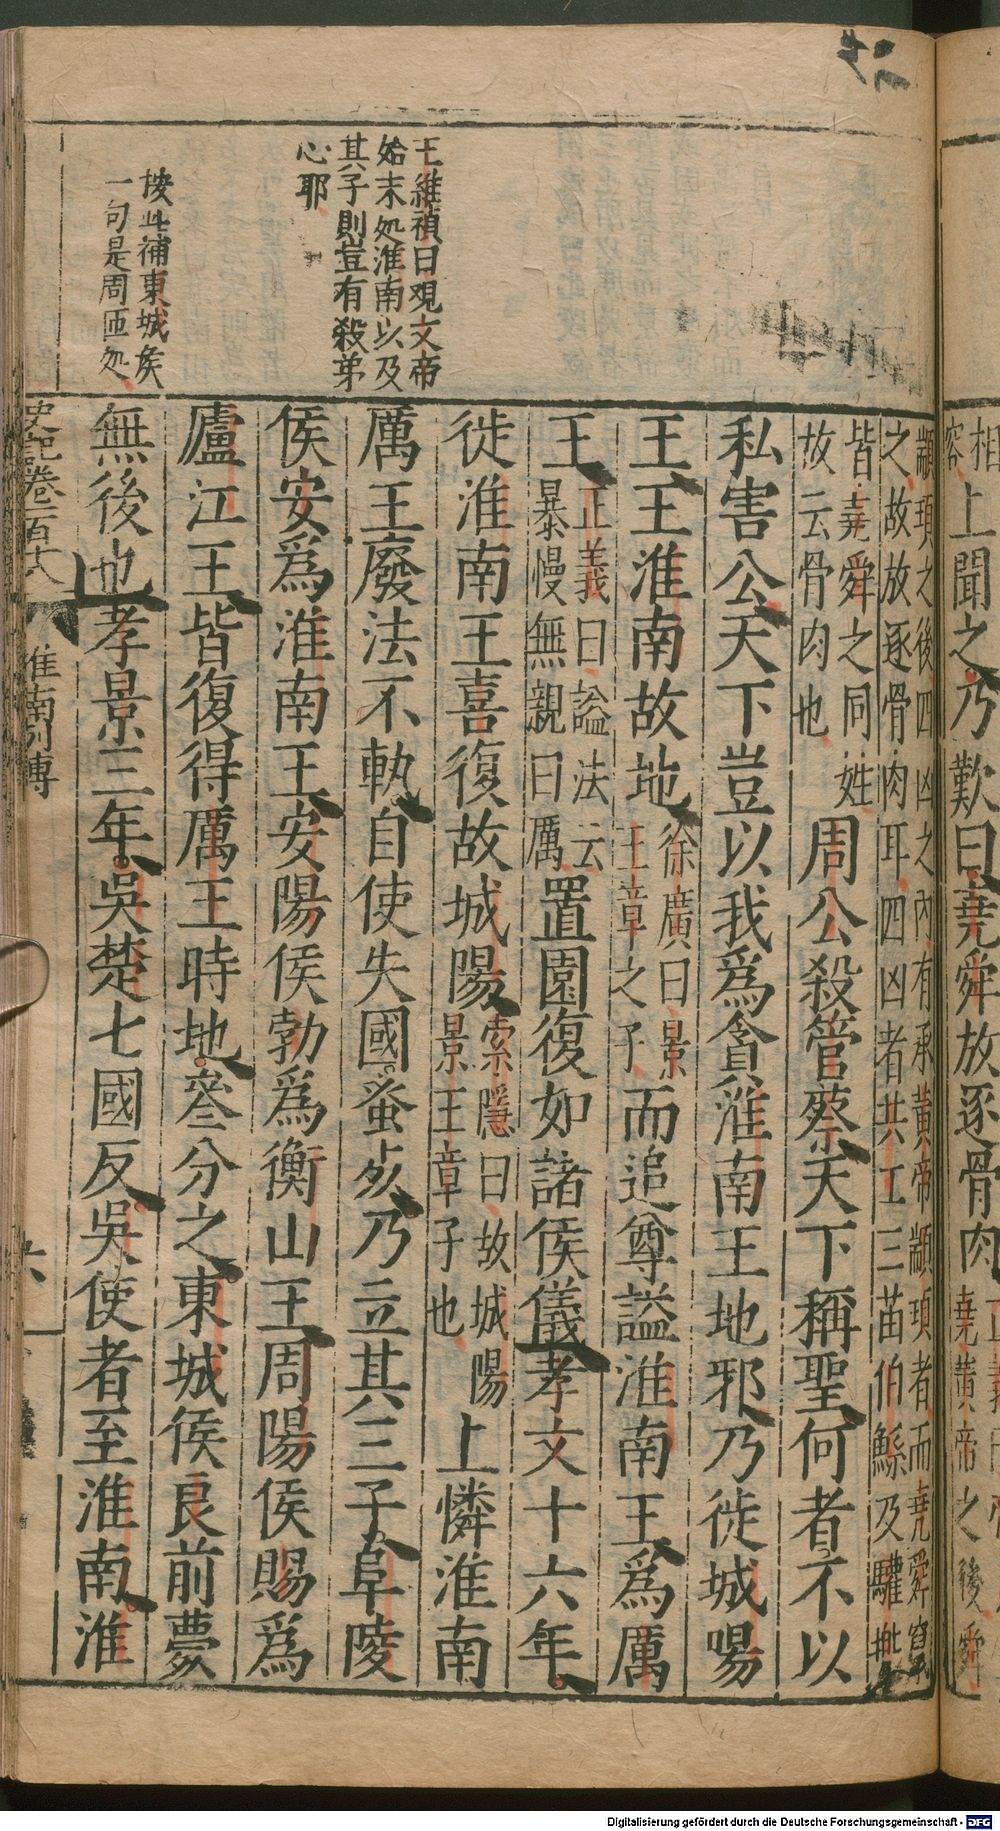 相
容
上聞之乃歎曰堯舜放逐骨肉
堯黃帝之後舜
王維禎曰觀文帝
始末処淮南以及
其子則豈有殺弟
心耶
按此補東城侯
一句是周匝処
顓頊之後四凶之內有承黃帝顓頊者而堯舜竄
之故放逐骨肉耳四凶者共工三苗伯鯀及驩
皆堯舜之同姓
故云骨肉也
周公殺管蔡天下稱聖何者不以
私害公天下豈以我爲貪淮南王地邪乃徙城陽
王王淮南故地
徐廣曰景
王章之子
而追尊謚淮南王爲厲
王
正義曰謚法云
暴慢無親曰厲
置園復如諸侯儀孝文十六年
徙淮南王喜復故城陽
索隱曰故城陽
景王章子也
上憐淮南
厲王廢法不軌自使失國蚤死乃立其三子阜陵
侯安爲淮南王安陽侯勃爲衡山王周陽侯賜爲
廬江王皆復得厲王時地叅分之東城侯良前薨
無後也孝景三年吳楚七國反吳使者至淮南淮
史記卷一百十八 淮南列傳 六
Digitalisierung gefördert durch die Deutsche Forschungsgemeinschaft - DFG